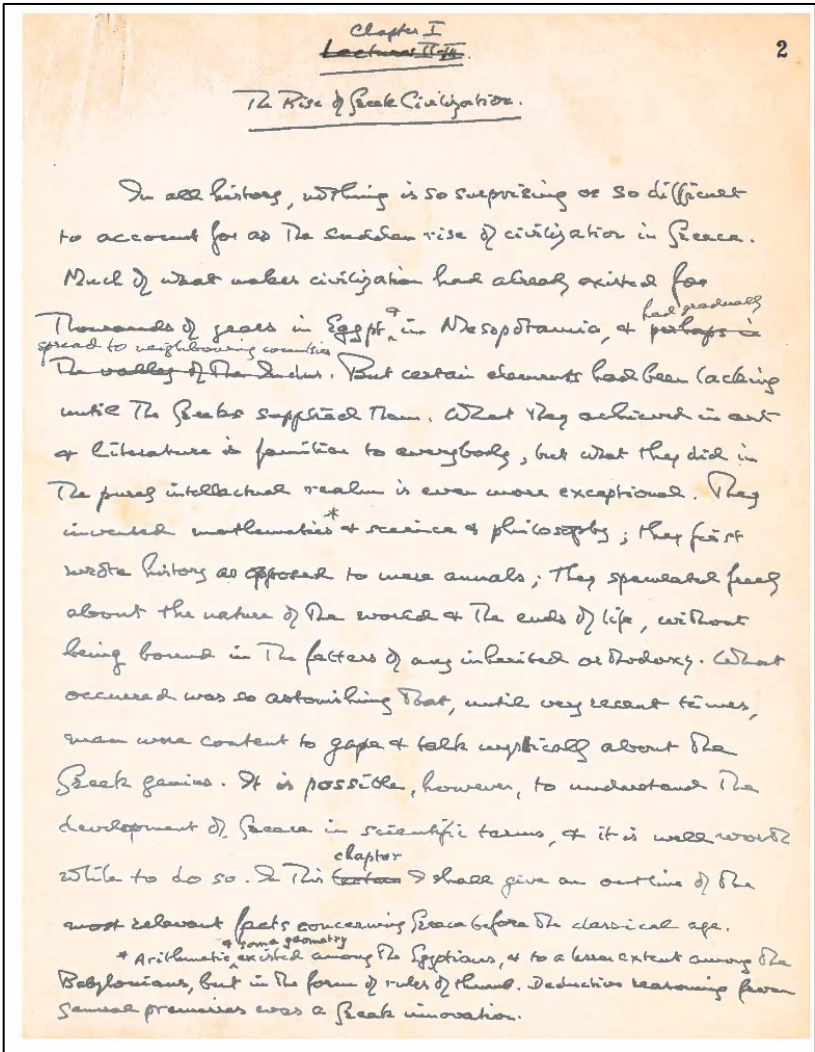 Chapter I
Lectures II-III.
2
The Rise of Greek Civilization.
In all history, nothing is so surprising or so difficult
to account for as the sudden rise of civilization in Greece.
Much of what makes civilization had already existed for
had gradually
Thousands of years in Egypt & in Mesopotamia, & perhaps in
spread to neighbouring countries
The valley of the Indus. But certain elements had been lacking
until the Greeks supplied them. What they achieved in art
& literature is familiar to everybody, but what they did in
the purely intellectual realm is even more exceptional. They
invented mathematics* & science & philosophy; they first
wrote history as opposed to mere annals; they speculated freely
about the nature of the world & the ends of life, without
being bound in the fetters of any inherited orthodoxy. What
occurred was so astonishing that, until very recent times,
men were content to gape & talk mystically about the
Greek genius. It is possible, however, to understand the
development of Greece in scientific terms, & it is well worth
chapter
while to do so. In this lecture I shall give an outline of the
most relevant facts concerning Greece before the classical age.
& some geometry
* Arithmetic existed among the Egyptians, & to a lesser extent among the
Babylonians, but in the form of rules of thumb. Deductive reasoning from
general premisses was a Greek innovation.